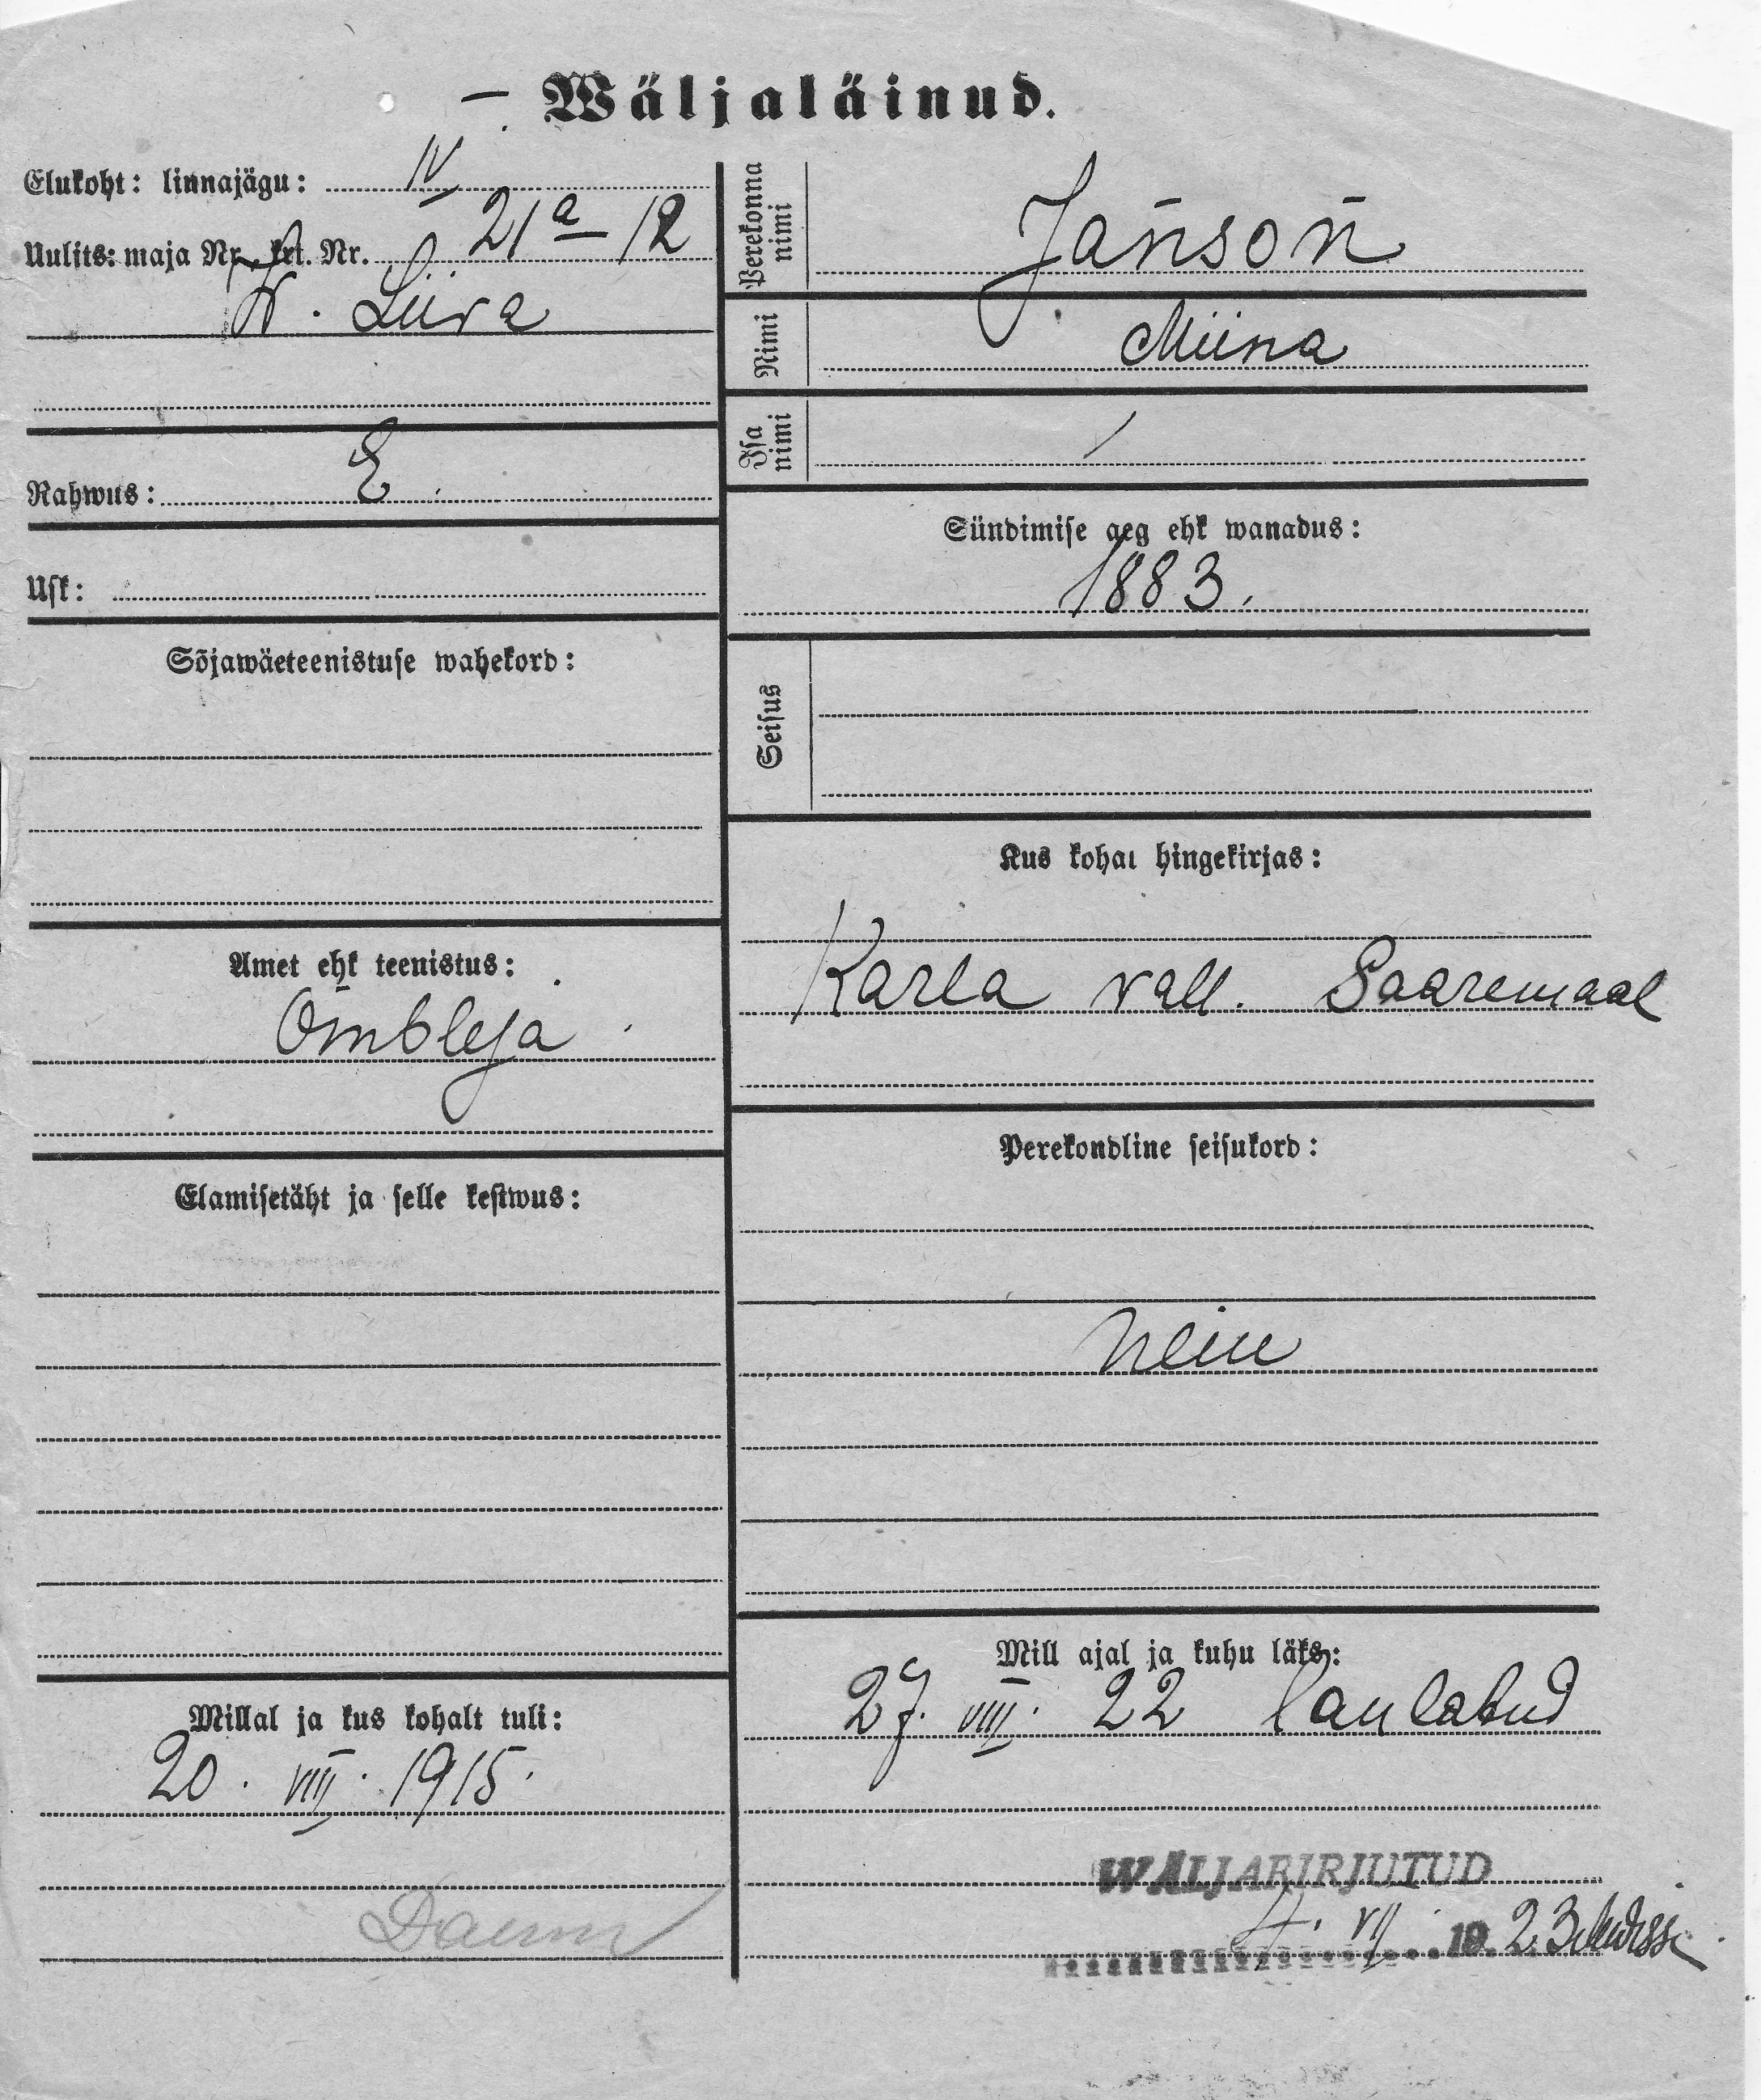 Wäljaläinud.
Elukoht: linnajägu: IV
Uulits: maja Nr., krt. Nr. 21ª — 12
W. Liiva
Rahwus: E.
Usk:
Sõjawäeteenistuse wahekord:
Amet ehk teenistus:
Õmbleja
Elamisetäht ja selle kestwus:
Millal ja kus kohalt tuli:
20. VIII. 1915.
Perekonna nimi
Janson
Nimi
Miina
Isa nimi
Sündimise aeg ehk wanadus:
1883.
Seisus
Kus kohal hingekirjas:
Karla vall. Saaremaal
Perekondline seisukord:
Neiu
Mill ajal ja kuhu läks:
27. VIII. 22 laulatud
WÄLJAKIRJUTUD
4. VII 1923